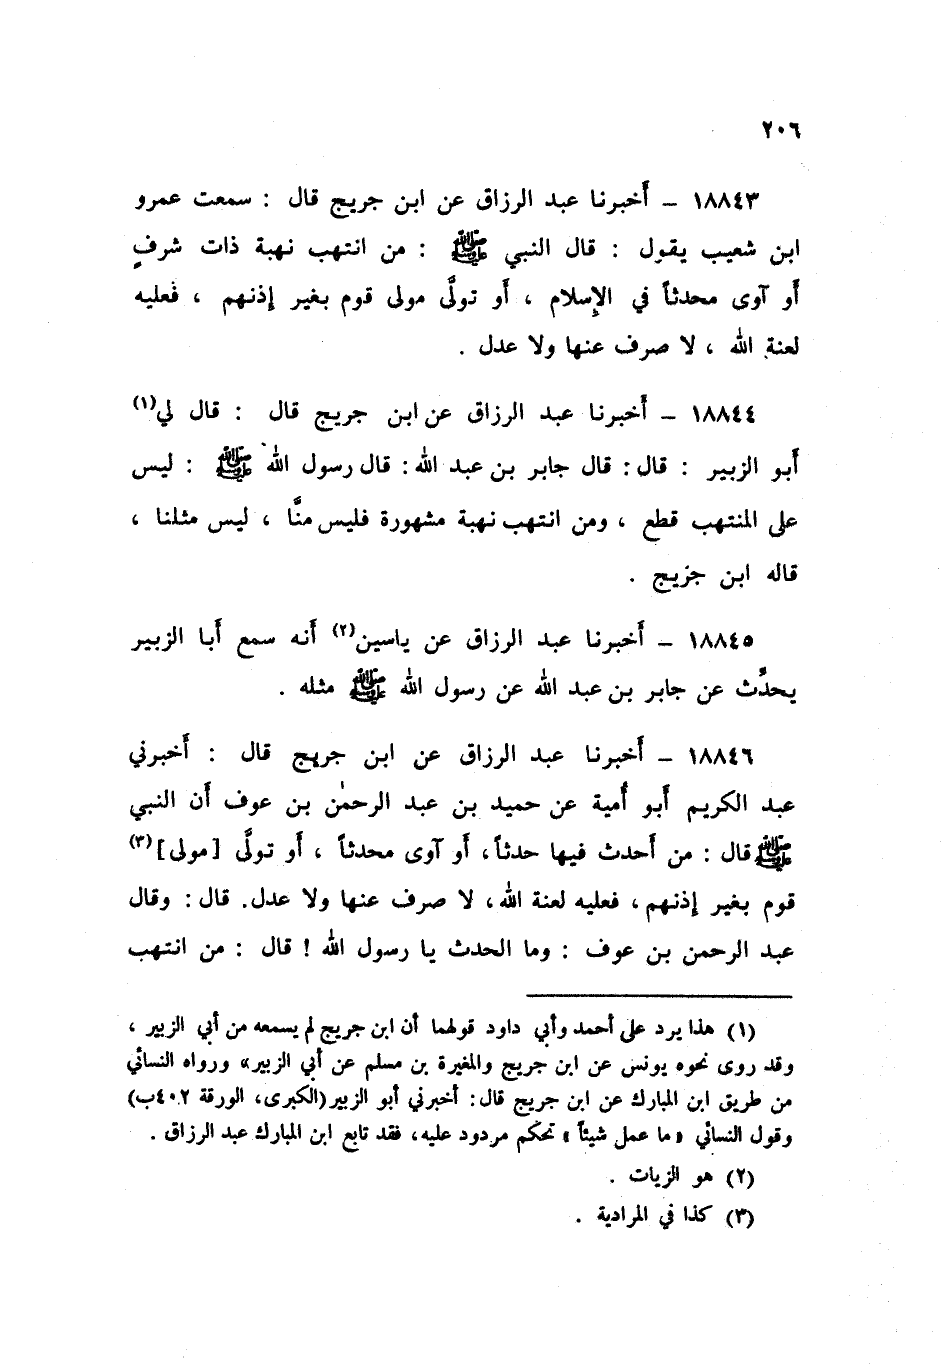 ٢٠٦
١٨٨٤٣ – أَخبرنا عبد الرزاق عن ابن جريج قال : سمعت عمرو
ابن شعيب يقول : قال النبي ﷺ : من انتهب نهبة ذات شرفٍ
أَو آوى محدثاً في الإِسلام ، أَو تولَّى مولى قوم بغير إِذنهم ، فَعليه
لعنة الله ، لا صرف عنها ولا عدل .
١٨٨٤٤ – أَخبرنا عبد الرزاق عن ابن جريج قال : قال لي(١)
أَبو الزبير : قال : قال جابر بن عبد الله : قال رسول الله ﷺ : ليس
على المنتهب قطع ، ومن انتهب نهبة مشهورة فليس منَّا ، ليس مثلنا ،
قاله ابن جزيج .
١٨٨٤٥ – أَخبرنا عبد الرزاق عن ياسين(٢) أَنه سمع أَبا الزبير
يحدِّث عن جابر بن عبد الله عن رسول الله ﷺ مثله .
١٨٨٤٦ – أَخبرنا عبد الرزاق عن ابن جريج قال : أَخبرني
عبد الكريم أَبو أُمية عن حميد بن عبد الرحمٰن بن عوف أَن النبي
ﷺ قال : من أَحدث فيها حدثاً ، أَو آوى محدثاً ، أَو تولَّى [مولى](٣)
قوم بغير إِذنهم ، فعليه لعنة الله ، لا صرف عنها ولا عدل. قال : وقال
عبد الرحمن بن عوف : وما الحدث يا رسول الله ! قال : من انتهب
(١) هذا يرد على أحمد وأبي داود قولهما أن ابن جريج لم يسمعه من أبي الزبير ،
وقد روى نحوه يونس عن ابن جريج والمغيرة بن مسلم عن أبي الزبير» ورواه النسائي
من طريق ابن المبارك عن ابن جريج قال : أخبرني أبو الزبير (الكبرى، الورقة ٤٠٢ب)
وقول النسائي «ما عمل شيئاً» تحكّم مردود عليه، فقد تابع ابن المبارك عبد الرزاق .
(٢) هو الزيات .
(٣) كذا في المرادية .